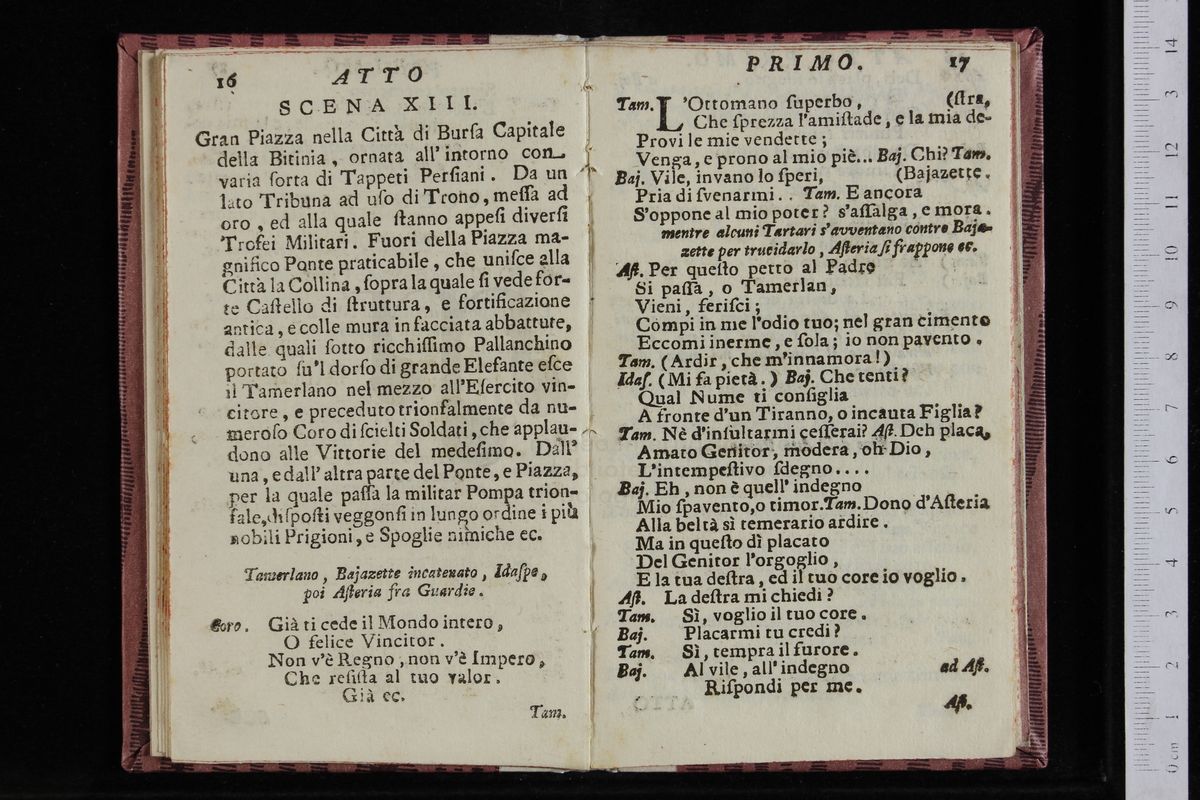 16 ATTO
SCENA XIII.
Gran Piazza nella Città di Burſa Capitale
della Bitinia, ornata all'intorno con
varia ſorta di Tappeti Perſiani. Da un
lato Tribuna ad uſo di Trono, meſſa ad
oro, ed alla quale ſtanno appeſi diverſi
Trofei Militari. Fuori della Piazza ma-
gnifico Ponte praticabile, che uniſce alla
Città la Collina, ſopra la quale ſi vede for-
te Caſtello di ſtruttura, e fortificazione
antica, e colle mura in facciata abbattute,
dalle quali ſotto ricchiſſimo Pallanchino
portato ſu'l dorſo di grande Elefante eſce
il Tamerlano nel mezzo all'Eſercito vin-
citore, e preceduto trionfalmente da nu-
meroſo Coro di ſcielti Soldati, che applau-
dono alle Vittorie del medeſimo. Dall'
una, e dall'altra parte del Ponte, e Piazza,
per la quale paſſa la militar Pompa trion-
fale, diſpoſti veggonſi in lungo ordine i più
nobili Prigioni, e Spoglie nimiche ec.
Tamerlano, Bajazette incatenato, Idaſpe,
poi Aſteria fra Guardie.
Coro. Già ti cede il Mondo intero,
O felice Vincitor.
Non v'è Regno, non v'è Impero,
Che reſiſta al tuo valor.
Già ec.
Tam.
PRIMO. 17
Tam. L'Ottomano ſuperbo, (ſtra,
Che ſprezza l'amiſtade, e la mia de-
Provi le mie vendette;
Venga, e prono al mio piè... Baj. Chi? Tam.
Baj. Vile, invano lo ſperi, (Bajazette.
Pria di ſvenarmi.. Tam. E ancora
S'oppone al mio poter? s'aſſalga, e mora.
mentre alcuni Tartari s'avventano contro Baja-
zette per trucidarlo, Aſteria ſi frappone ec.
Aſt. Per queſto petto al Padre
Si paſſa, o Tamerlan,
Vieni, feriſci;
Compi in me l'odio tuo; nel gran cimento
Eccomi inerme, e ſola; io non pavento.
Tam. (Ardir, che m'innamora!)
Idaſ. (Mi fa pietà.) Baj. Che tenti?
Qual Nume ti conſiglia
A fronte d'un Tiranno, o incauta Figlia?
Tam. Nè d'inſultarmi ceſſerai? Aſt. Deh placa,
Amato Genitor, modera, oh Dio,
L'intempeſtivo ſdegno....
Baj. Eh, non è quell'indegno
Mio ſpavento, o timor. Tam. Dono d'Aſteria
Alla beltà sì temerario ardire.
Ma in queſto dì placato
Del Genitor l'orgoglio,
E la tua deſtra, ed il tuo core io voglio.
Aſt. La deſtra mi chiedi?
Tam. Sì, voglio il tuo core.
Baj. Placarmi tu credi?
Tam. Sì, tempra il furore.
Baj. Al vile, all'indegno ad Aſt.
Riſpondi per me.
Aſt.
0 cm 1 2 3 4 5 6 7 8 9 10 11 12 3 14